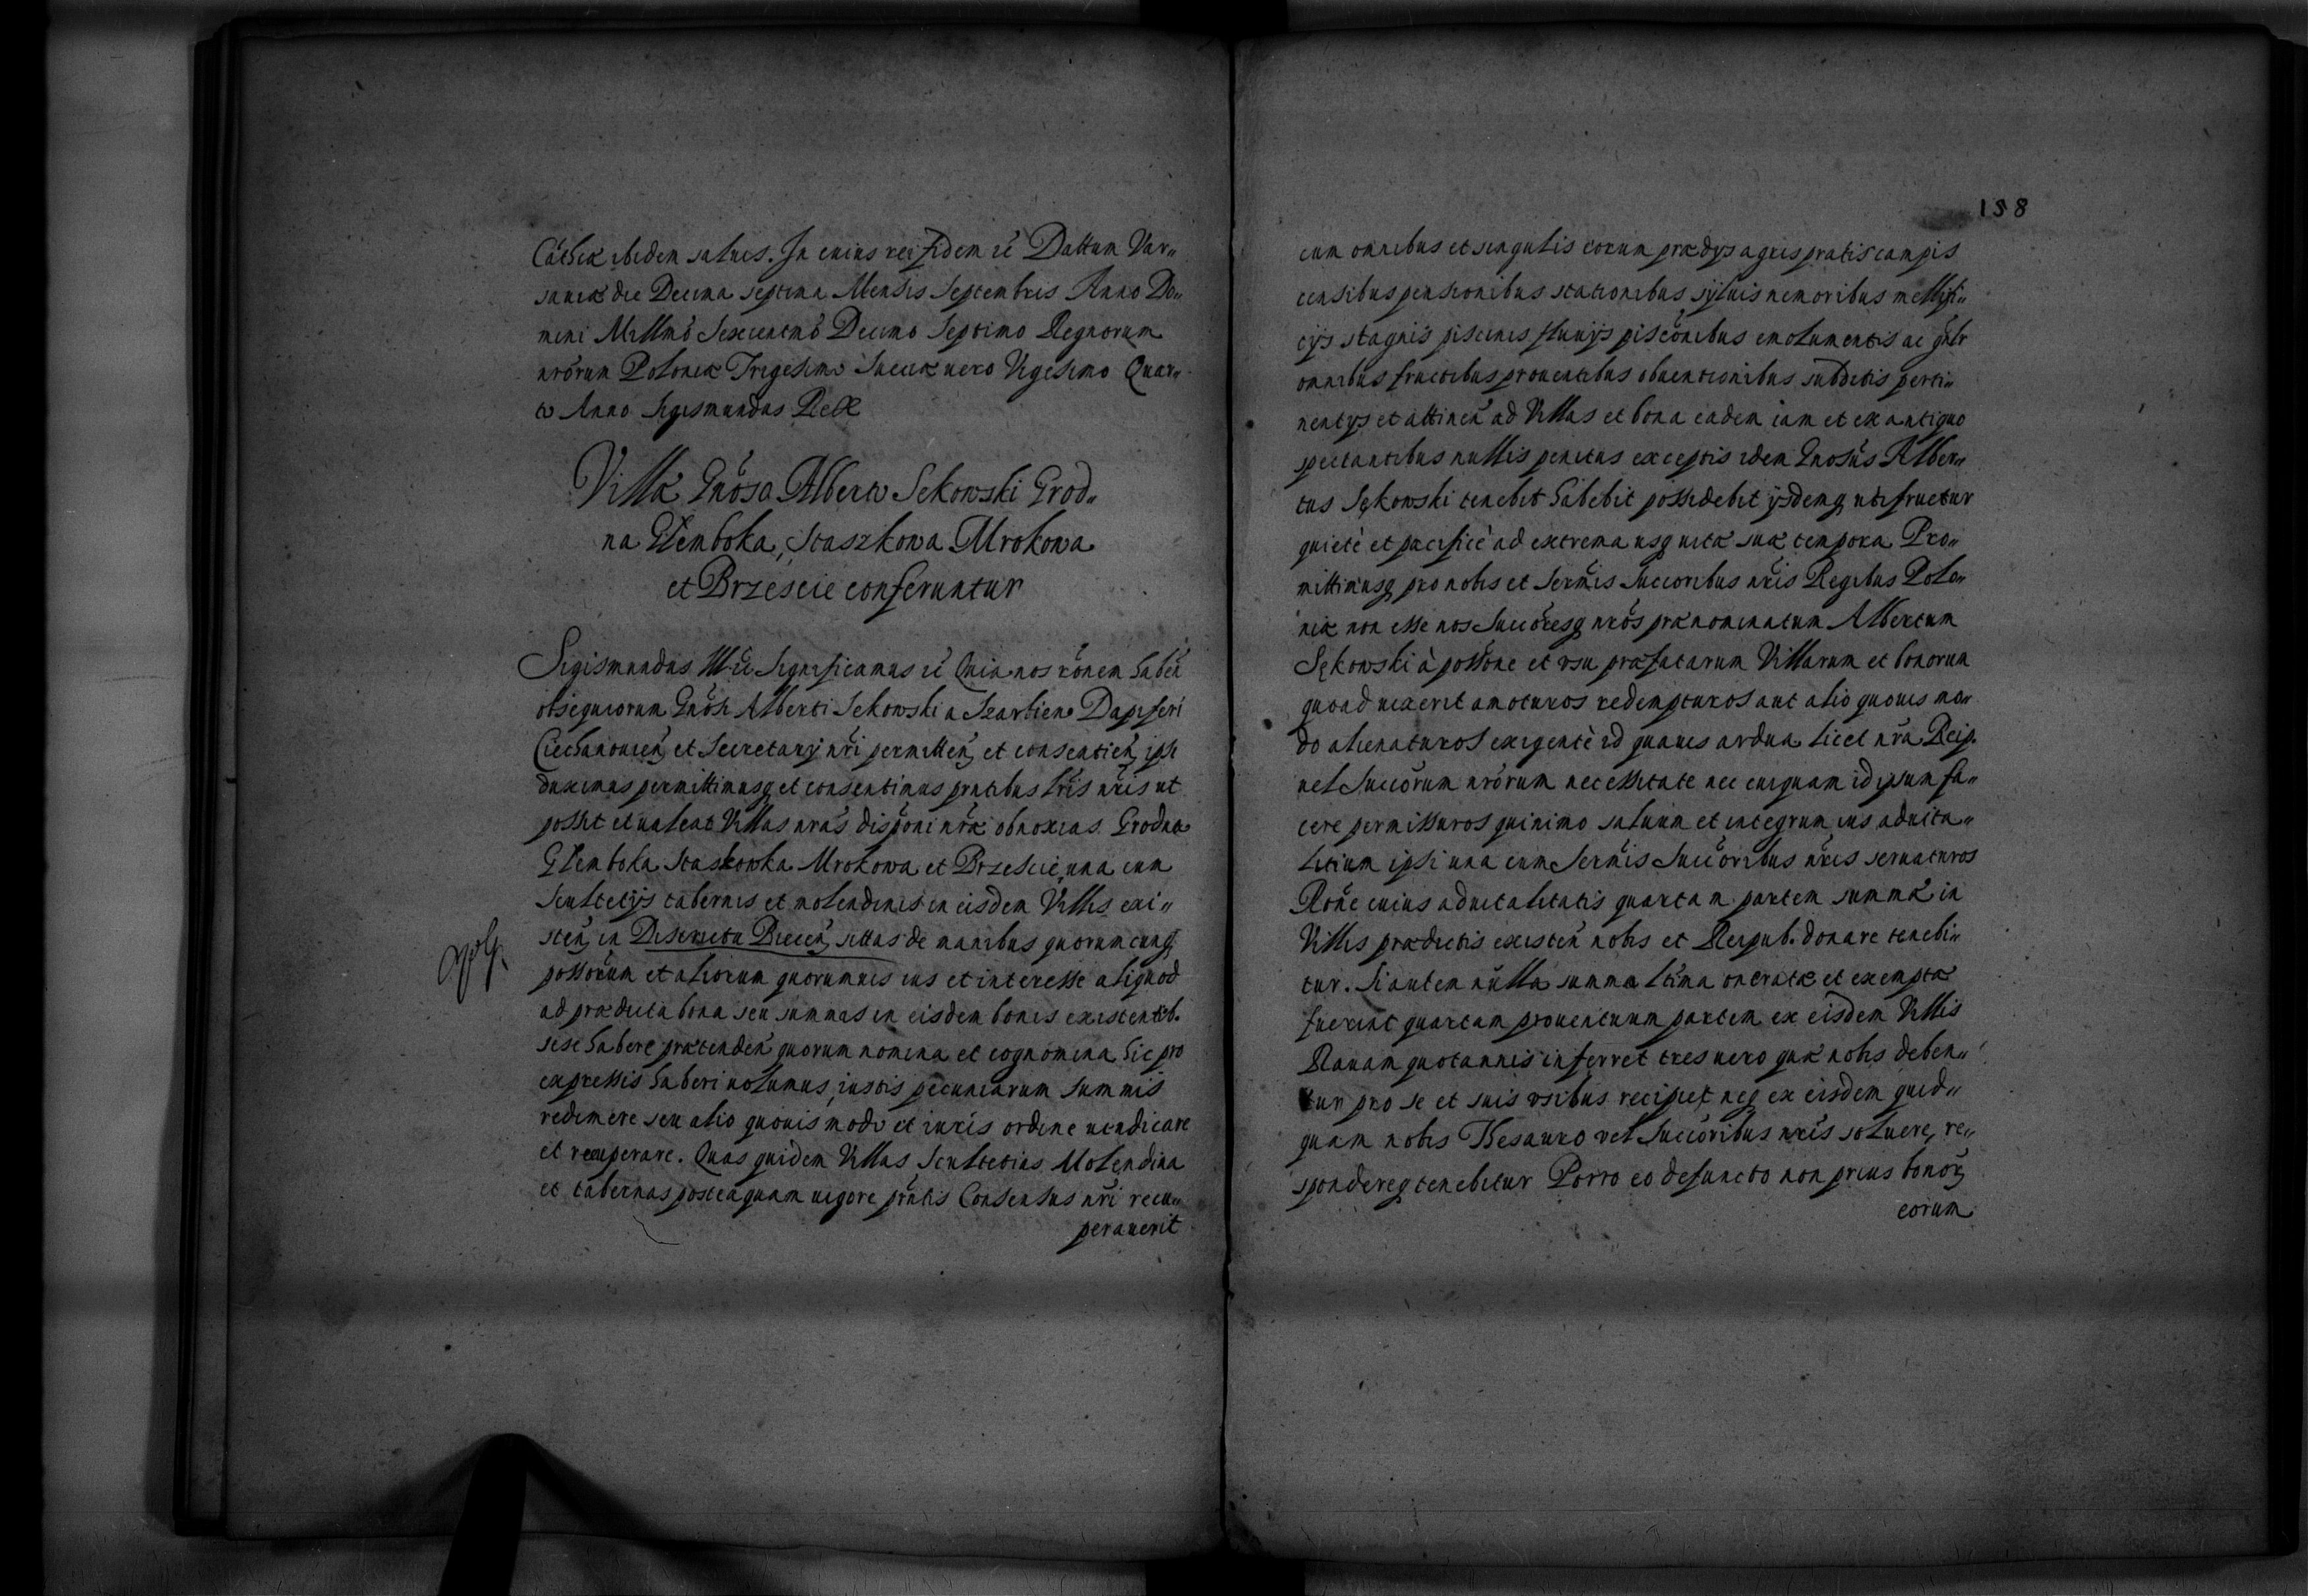 Cathek ibidem saluis. In cuius rei fidem ět Dattum Var„
sauiæ die Decima septima Mensis Septembris Anno Do„
mini Millmő Sexcentmő Decimo Septimo Regnorum
nrőrum Poloniæ Trigesimo Sueciæ uero Vigesimo Quar„
to Anno Sigismundus Rex
Villæ Gnőso Alberto Sekowski Grod„
na Głemboka, Staszkowa Mrokowa
et Brzescie conferuntur
Sigismundus III ět Significamus ět Quia nos rőnem habeň
obsequiorum Gnősi Alberti Sekowski a Dapiferi
Ciechanouieň, et Secretarij nři permitteň, et consentieň, ipsi
duximus permittimusq, et consentimus pntibus lřis nřis ut
possit et ualeat Villas nrás dispőni nřæ obnoxias Grodna
Głemboka Staskowka Mrokowa et Brzescie, una cum
Scultetijs tabernis et molendinis in eisdem Villis exi„
steň, in Districtu Bieceň, sittas de manibus quorumcunq,
possořum et aliorum quorumuis ius et interesse aliquod
ad prædicta bona seu summas in eisdem bonis existentib.
sese habere prætendeň quorum nomina et cognomina hic pro
expressis haberi uolumus, iustis pecuniarum summis
redimere seu alio quouis modo et iuris ordine uendicare
et recuperare. Quas quidem Villas Scultetias Molendina
et tabernas posteaquam uigore pňtis Consensus nři recu„
perauerit
158
cum omnibus et singulis eorum prædys agris pratis campis
censibus pensionibus stationibus syluis nemoribus mellifi„
cys stagnis piscinis fluuijs piscőnibus emolumentis ac gnlr
omnibus fructibus prouentibus obuentionibus subditis perti„
nentys et attineň ad Villas et bona eadem iam et ex antiquo
spectantibus nullis penitus exceptis idem Gnosűs Alber„
tus Sękowski tenebit habebit possidebit ijsdemq, utifruetur
quietè et pacificè ad extrema usq uitæ suæ tempora Pro„
mittimusq, pro nobis et Sermis Succoribus nřis Regibus Polo„
niæ non esse nos Succőresq nrős prænominatum Albertum
Sękowski à possőne et usu præfatarum Villarum et bonorum
quoad uixerit amoturos redempturos aut alio quouis mo„
do alienaturos exigente id quauis ardua licet nřa Reip.
uel Succőrum nrőrum necessitate nec cuiquam id ipsum fa„
cere permissuros quinimo saluum et integrum ius aduita„
litium ipsi una cum Sermis Succőribus nřis seruaturos
Rőne cuius aduitalitatis quartam partem summæ in
Villis prædictis existeň nobis et Reipub. donare tenebi„
tur. Si autem nulla summa ltima oneratæ et exemptæ
fuerint quartam prouentuum partem ex eisdem Villis
Rauam quotannis inferret tres uero quæ nobis deben„
tur pro se et suis usibus recipiet neq ex eisdem quid„
quam nobis Thesauro vel Succőribus nřis soluere, re„
spondereq tenebitur Porro eo defuncto non prius bonor,
eorum